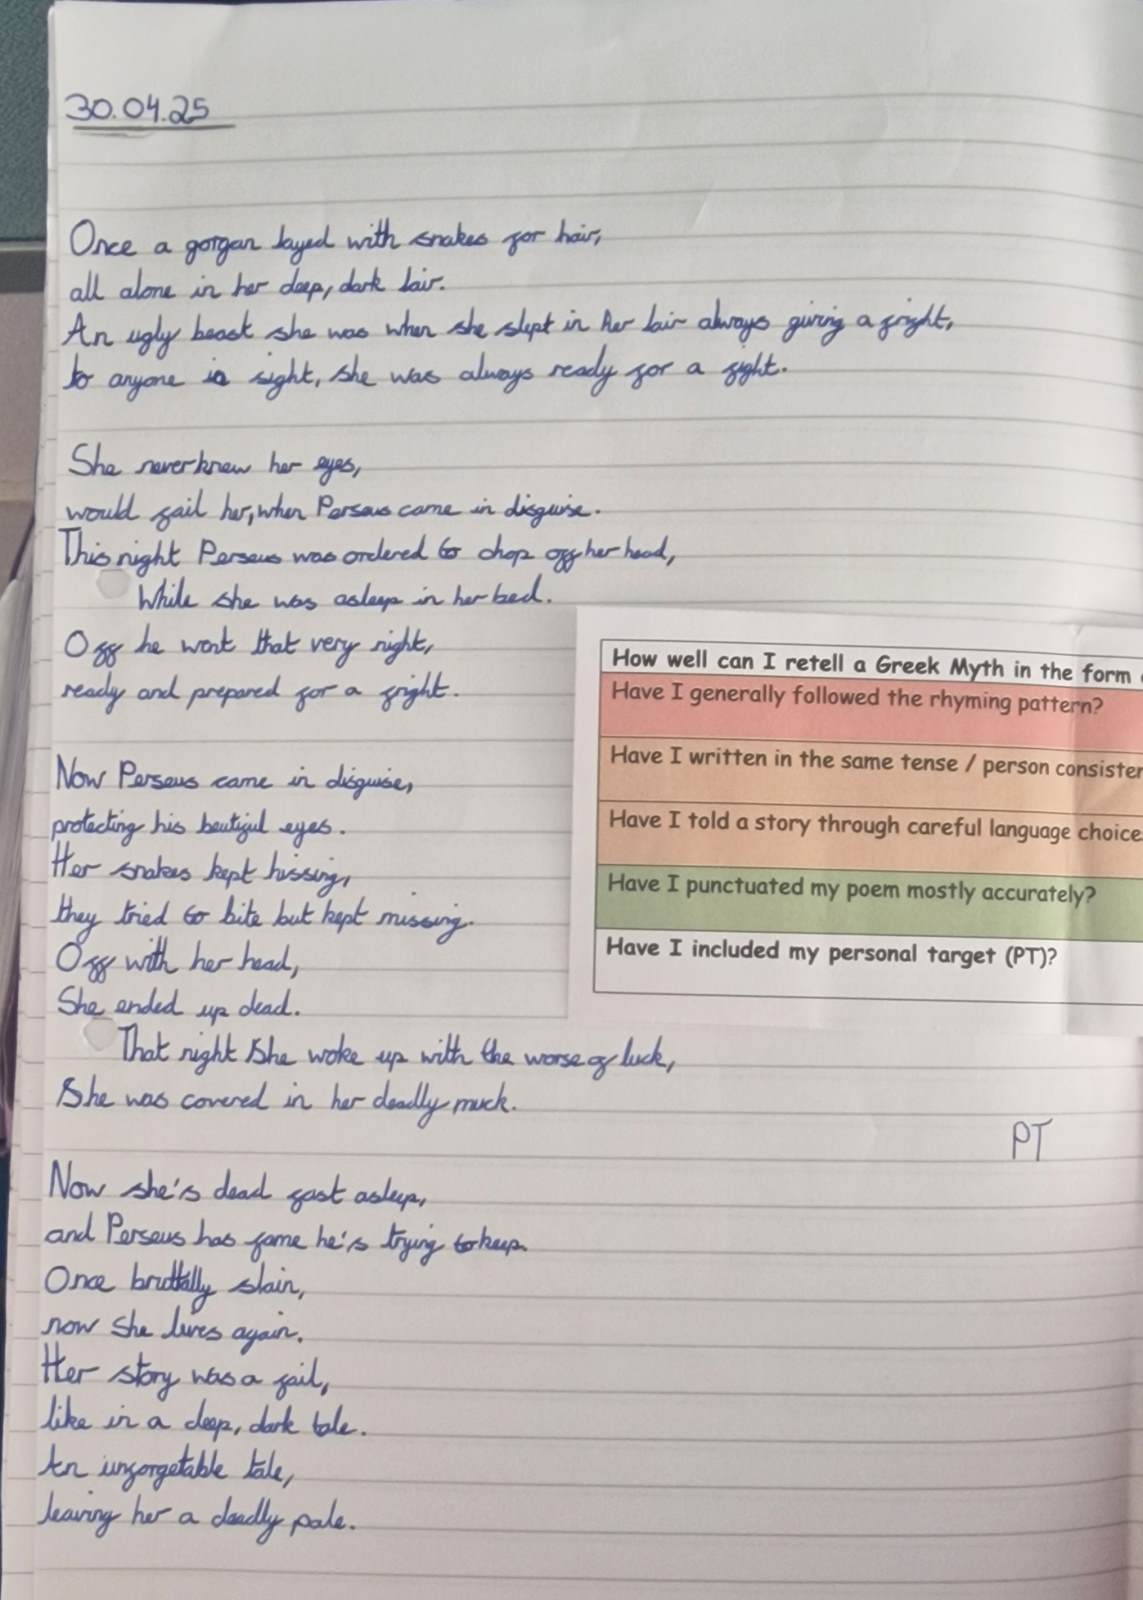 30.04.25
Once a gorgan layed with snakes for hair,
all alone in her deep, dark lair.
An ugly beast she was when she slept in her lair always giving a fright,
to anyone in sight, she was always ready for a fight.
She never knew her eyes,
would fail her, when Perseus came in disguise.
This night Perseus was ordered to chop off her head,
While she was asleep in her bed.
Off he went that very night,
ready and prepared for a fright.
How well can I retell a Greek Myth in the form
Have I generally followed the rhyming pattern?
Have I written in the same tense / person consister
Have I told a story through careful language choice
Have I punctuated my poem mostly accurately?
Have I included my personal target (PT)?
Now Perseus came in disguise,
protecting his beutiful eyes.
Her snakes kept hissing,
they tried to bite but kept missing.
Off with her head,
She ended up dead.
That night she woke up with the worse of luck,
She was covered in her deadly muck.
PT
Now she's dead fast asleep,
and Perseus has fame he's trying to keep.
Once bruttally slain,
now she lives again.
Her story was a fail,
like in a deep, dark tale.
An unforgetable tale,
leaving her a deadly pale.